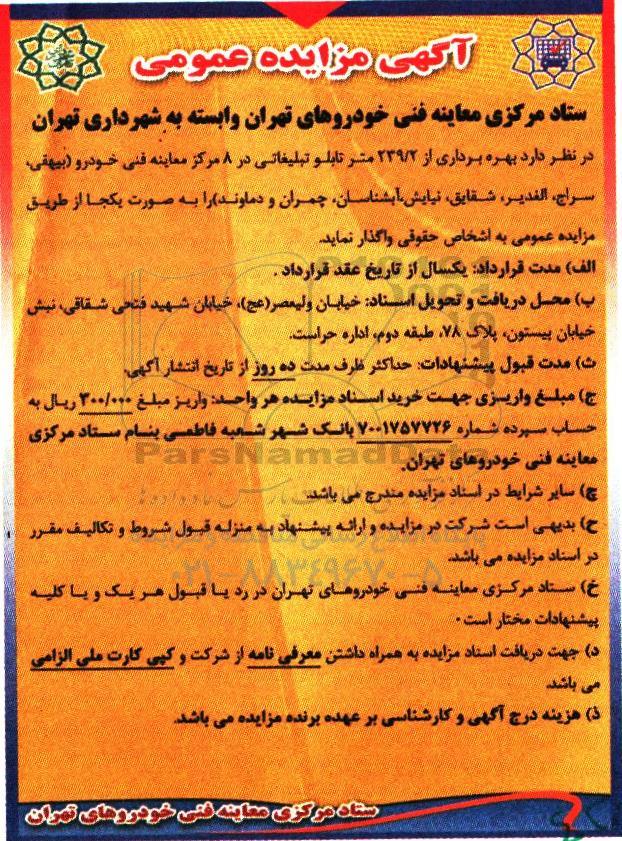 آگهی مزایده عمومی
ستاد مرکزی معاینه فنی خودروهای تهران وابسته به شهرداری تهران
در نظر دارد بهره برداری از ۲۳۹/۲ متر تابلو تبلیغاتی در ۸ مرکز معاینه فنی خودرو (بیهقی،
سراج، الغدیر، شقایق، نیایش،آبشناسان، چمران و دماوند)را به صورت یکجا از طریق
مزایده عمومی به اشخاص حقوقی واگذار نماید.
الف) مدت قرارداد: یکسال از تاریخ عقد قرارداد .
ب) محل دریافت و تحویل اسناد: خیابان ولیعصر(عج)، خیابان شهید فتحی شقاقی، نبش
خیابان بیستون، پلاک ۷۸، طبقه دوم، اداره حراست.
ث) مدت قبول پیشنهادات: حداکثر ظرف مدت ده روز از تاریخ انتشار آگهی.
ج) مبلغ واریزی جهت خرید اسناد مزایده هر واحد: واریز مبلغ ۳۰۰/۰۰۰ ریال به
حساب سپرده شماره ۷۰۰۱۷۵۷۷۲۶ بانک شهر شعبه فاطمی بنام ستاد مرکزی
معاینه فنی خودروهای تهران.
ParsNamadData
چ) سایر شرایط در اسناد مزایده مندرج می باشد.
ح) بدیهی است شرکت در مزایده و ارائه پیشنهاد به منزله قبول شروط و تکالیف مقرر
در اسناد مزایده می باشد.
۰۲۱-۸۸۳۴۹۶۷۰-۵
خ) ستاد مرکزی معاینه فنی خودروهای تهران در رد یا قبول هر یک و یا کلیه
پیشنهادات مختار است.
د) جهت دریافت اسناد مزایده به همراه داشتن معرفی نامه از شرکت و کپی کارت ملی الزامی
می باشد.
ذ) هزینه درج آگهی و کارشناسی بر عهده برنده مزایده می باشد.
ستاد مرکزی معاینه فنی خودروهای تهران